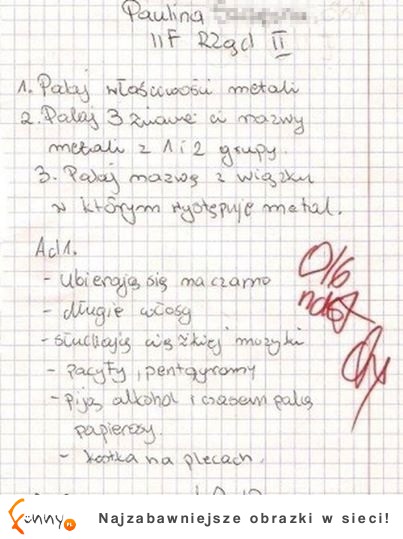 Paulina
IIF Rząd II
1. Podaj właściwości metali
2. Podaj 3 znane ci nazwy
metali z 1 i 2 grupy.
3. Podaj nazwę związku
w którym występuje metal.
Ad1.
- ubierają się na czarno
- długie włosy
- słuchają ciężkiej muzyki
- pacyfy, pentagramy
- piją alkohol i czasem palą
papierosy
- kostka na plecach.
0/6
ndst
Funny.pl
Najzabawniejsze obrazki w sieci!